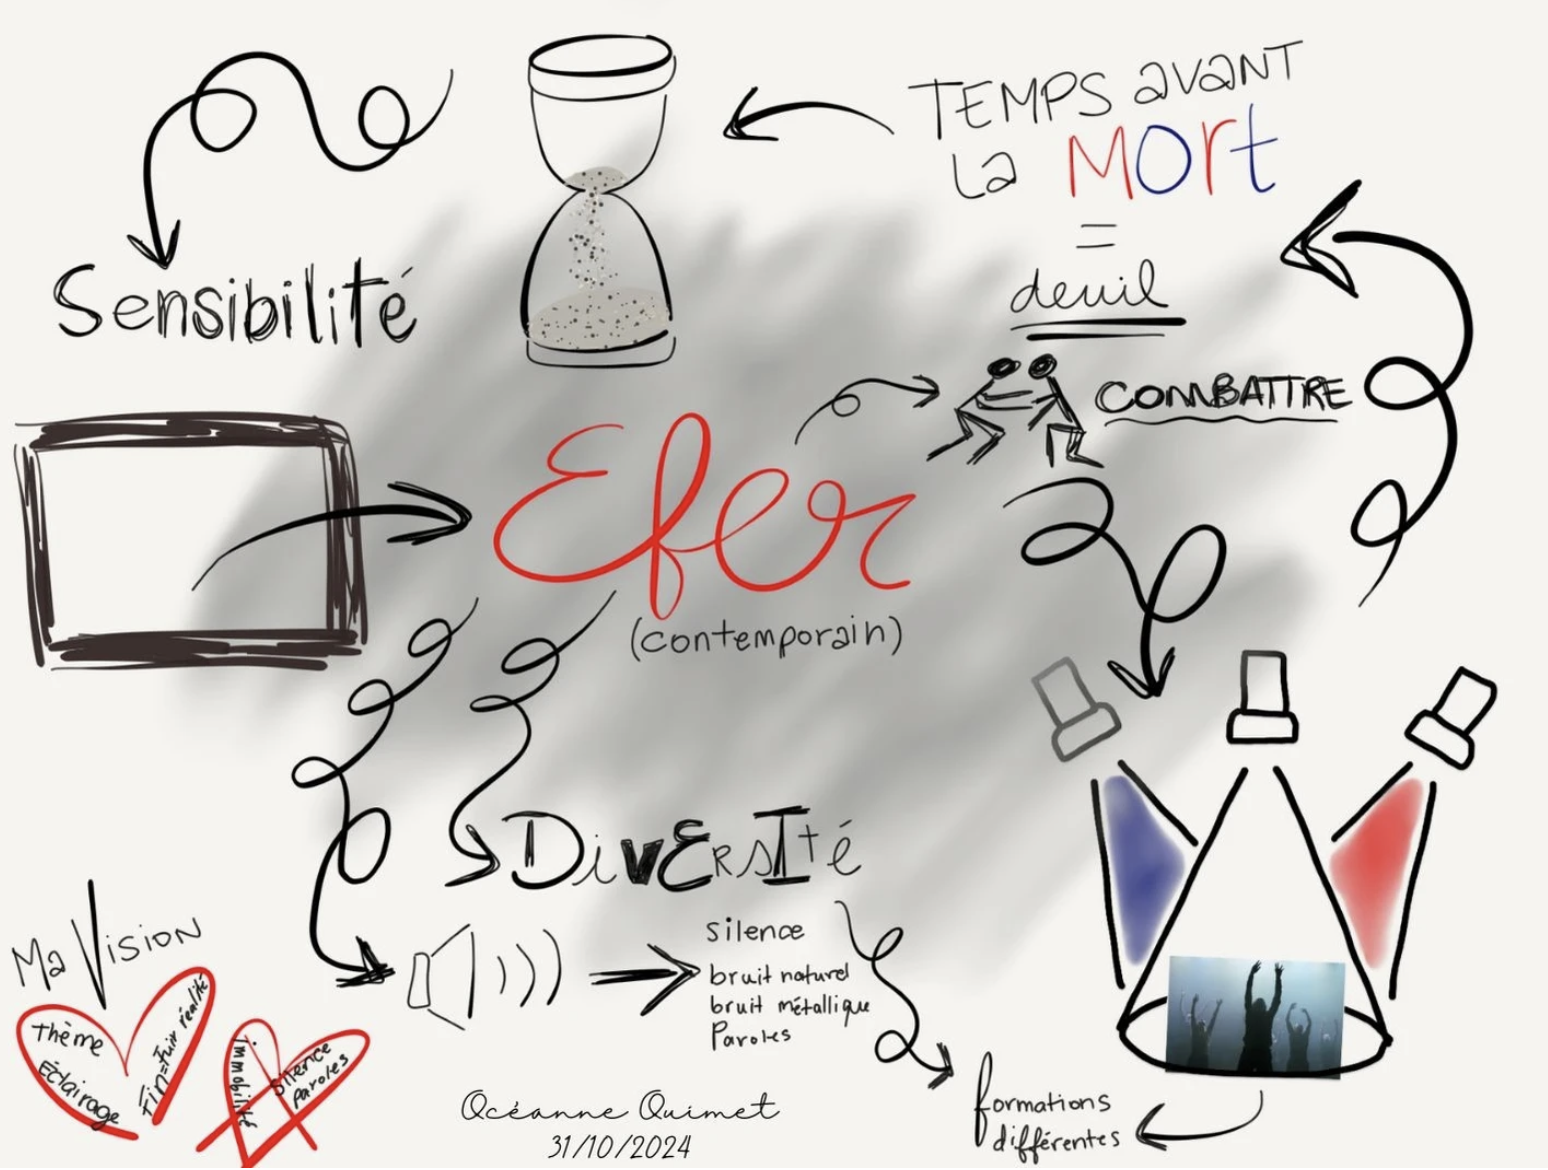 TEMPS avant
la mort
=
deuil
Sensibilité
COMBATTRE
Efer
(contemporain)
DivErsIté
silence
bruit naturel
bruit métallique
Paroles
Ma Vision
Thème
Éclairage
Fin=Fuir réalité
immobilité
silence
paroles
formations
différentes
Océanne Ouimet
31/10/2024